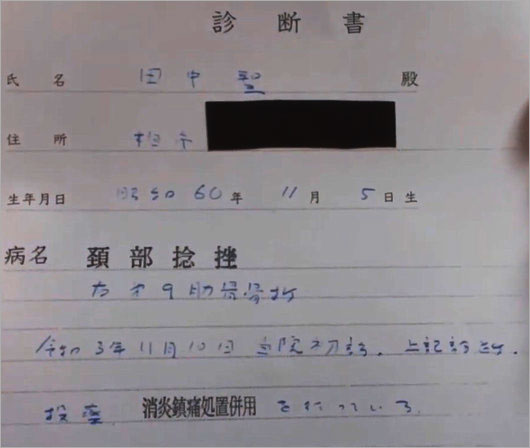 診断書
氏名 田中聖 殿
住所 柏市
生年月日 昭和60年11月5日生
病名 頚部捻挫
右第9肋骨骨折
令和3年11月10日当院初診。上記診断。
投薬 消炎鎮痛処置併用 を行っている。